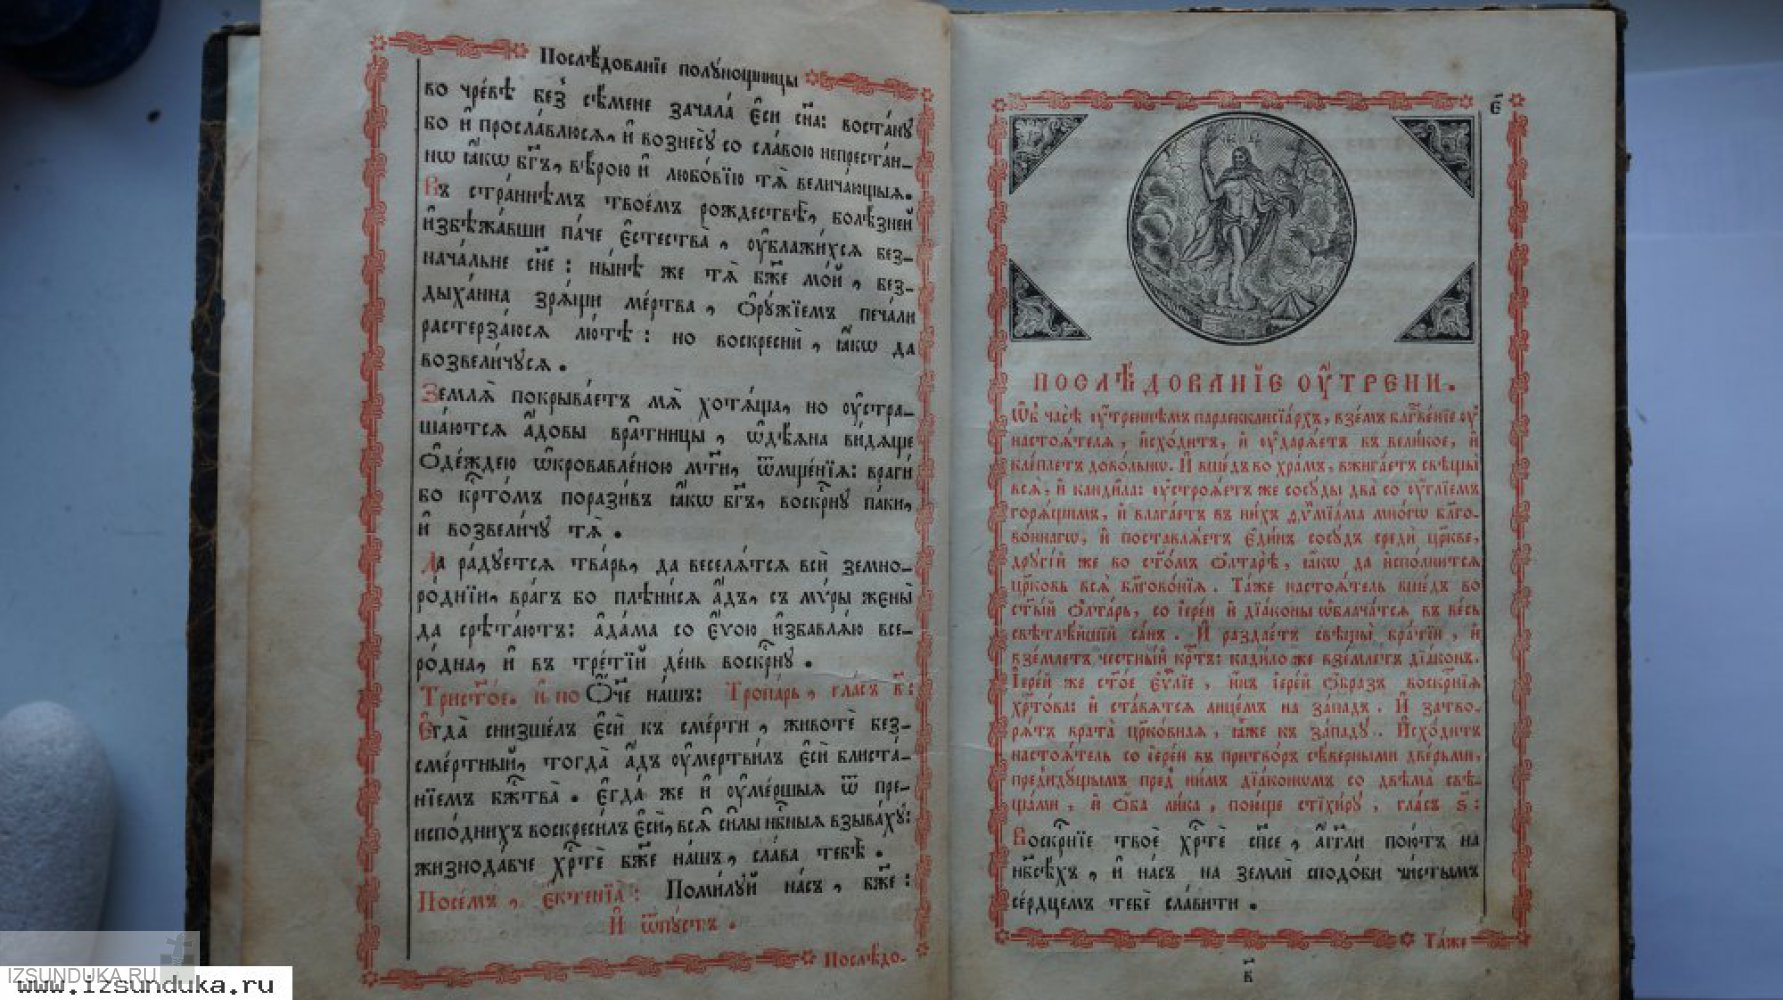 Послѣ́дованїе полу́нощницы
во чре́вѣ без̾ сѣ́мене зачала̀ є҆сѝ сн҃а: воста́нꙋ
бо и҆ просла́влюсѧ, и҆ вознесꙋ̀ со сла́вою непреста́н-
нѡ ꙗ҆́кѡ бг҃ъ, вѣ́рою и҆ любо́вїю тѧ̀ велича́ющыѧ.
Въ стра́ннѣмъ твоє́мъ рождествѣ̀, болѣ́зней
и҆збѣжа́вши па́че є҆стества̀, оу҆блажи́хсѧ без-
нача́льне сн҃е: ны́нѣ же тѧ̀ бж҃е мо́й, без-
дыха́нна зрѧ́щи ме́ртва, ѻ҆рꙋ́жїемъ печа́ли
растерза́юсѧ лю́тѣ: но воскреснѝ, ꙗ҆́кѡ да
возвели́чꙋсѧ.
Землѧ̀ покрыва́етъ мѧ̀ хотѧ́ща, но оу҆стра-
ша́ютсѧ а҆́довы вра́тницы, ѡ҆дѣ́ѧна ви́дѧще
ѻ҆де́ждею ѡ҆кровавле́ною мт҃и, ѿмще́нїѧ: враги́
бо крⷭ҇то́мъ порази́въ ꙗ҆́кѡ бг҃ъ, воскрⷭ҇нꙋ па́ки,
и҆ возвели́чꙋ тѧ̀.
Да ра́дꙋетсѧ тва́рь, да веселѧ́тсѧ всѝ земно-
ро́днїи, вра́гъ бо плѣни́сѧ а҆́дъ, съ мѵ́ры жєны̀
да срѣта́ютъ: а҆да́ма со є҆́ѵою и҆збавлѧ́ю все-
ро́дна, и҆ въ тре́тїй де́нь воскрⷭ҇нꙋ.
Трист҃о́е. и҆ по Ѻ҆́ч҃е на́шъ: Тропа́рь, гла́съ в҃:
Є҆гда̀ снизше́лъ є҆сѝ къ сме́рти, животѐ без-
сме́ртный, тогда̀ а҆́дъ оу҆мертви́лъ є҆сѝ блиста́-
нїемъ бж҃тва̀. Є҆гда́ же и҆ оу҆ме́ршыѧ ѿ пре-
испо́днихъ воскреси́лъ є҆сѝ, всѧ̑ си̑лы нбⷭ҇ныѧ взыва́хꙋ:
жизнода́вче хрⷭ҇тѐ бж҃е на́шъ, сла́ва тебѣ̀.
Посе́мъ, є҆ктенїа̀: Поми́лꙋй на́съ, бж҃е:
И҆ ѿпꙋ́стъ.
Послѣ́до-
є҃
ПОСЛѢ́ДОВАНЇЕ ОУ҆́ТРЕНИ.
Ѡ҆ ча́сѣ оу҆́треннѣмъ параеккле́сїархъ, взе́мъ блгⷭ҇ве́нїе оу҆
настоѧ́телѧ, и҆схо́дитъ, и҆ оу҆дарѧ́етъ въ вели́кое, и҆
кле́плетъ дово́льнѡ. И҆ вше́дъ во хра́мъ, вжига́етъ свѣщы̀
всѧ̑, и҆ канди́ла: оу҆строѧ́етъ же сосꙋ́ды два̀ со оу҆́глїемъ
горѧ́щимъ, и҆ влага́етъ въ ни́хъ ѳѷмїа́ма мно́гѡ бл҃го-
во́ннагѡ, и҆ поставлѧ́етъ є҆ди́нъ сосꙋ́дъ средѝ цр҃кве,
дрꙋгі́й же во ст҃о́мъ ѻ҆лтарѣ̀, ꙗ҆́кѡ да и҆спо́лнитсѧ
цр҃ковь всѧ̀ бл҃гово́нїѧ. Та́же настоѧ́тель вше́дъ во
ст҃ы́й ѻ҆лта́рь, со і҆ере́и и҆ дїа́коны ѡ҆блача́тсѧ въ ве́сь
свѣтлѣ́йшїй са́нъ. И҆ раздае́тъ свѣщы̀ бра́тїи, и҆
взе́млетъ честны́й крⷭ҇тъ: кади́ло же взе́млетъ дїа́конъ.
І҆ере́й же ст҃о́е є҆ѵⷢ҇лїе, и҆́нъ і҆ере́й ѻ҆́бразъ воскрⷭ҇нїѧ
хрⷭ҇то́ва: и҆ ста́вѧтсѧ лице́мъ на за́падъ. И҆ затво-
рѧ́тъ врата̀ цр҃кѡ́внаѧ, ꙗ҆̀же къ за́падꙋ. И҆схо́дитъ
настоѧ́тель со і҆ере́и въ притво́ръ сѣ́верными две́рьми,
предидꙋ́щымъ пред̾ ни́мъ дїа́кономъ со двѣма̀ свѣ-
ща́ми, и҆ ѻ҆́ба ли́ка, пою́ще стїхи́рꙋ, гла́съ ѕ҃:
Воскрⷭ҇нїе твоѐ хрⷭ҇тѐ сп҃се, а҆́гг҃ли пою́тъ на
нб҃сѣ́хъ, и҆ на́съ на землѝ сподо́би чи́стымъ
се́рдцемъ тебѐ сла́вити.
Та́же
в҃
IZSUNDUKA.RU
www.izsunduka.ru